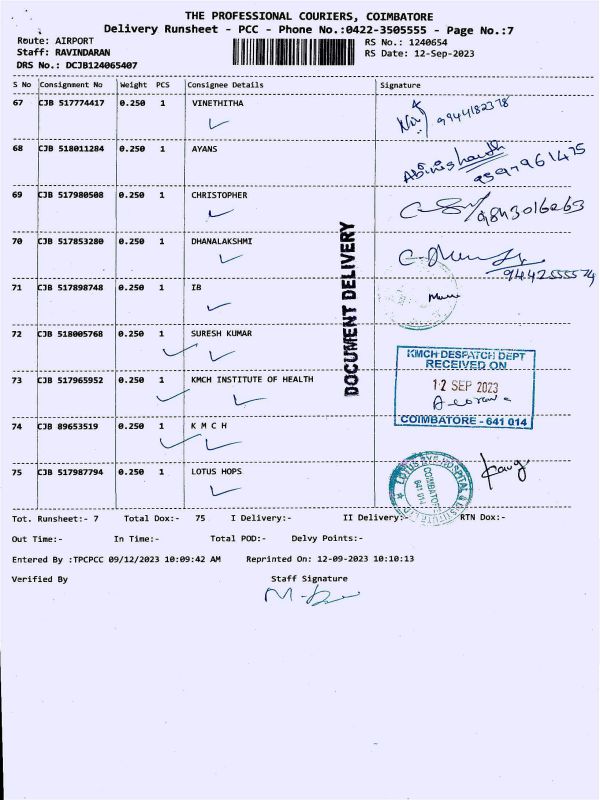 THE PROFESSIONAL COURIERS, COIMBATORE
Delivery Runsheet - PCC - Phone No.:0422-3505555 - Page No.:7
Route: AIRPORT
RS No.: 1240654
Staff: RAVINDARAN
RS Date: 12-Sep-2023
DRS No.: DCJB124065407
S No Consignment No Weight PCS Consignee Details Signature
67 CJB 517774417 0.250 1 VINETHITHA 9944182378
68 CJB 518011284 0.250 1 AYANS 9597961475
69 CJB 517980508 0.250 1 CHRISTOPHER
70 CJB 517853280 0.250 1 DHANALAKSHMI
71 CJB 517898748 0.250 1 IB
72 CJB 518005768 0.250 1 SURESH KUMAR
73 CJB 517965952 0.250 1 KMCH INSTITUTE OF HEALTH
74 CJB 89653519 0.250 1 K M C H
75 CJB 517987794 0.250 1 LOTUS HOPS
DOCUMENT DELIVERY
KMCH DESPATCH DEPT
RECEIVED ON
12 SEP 2023
COIMBATORE - 641 014
LOTUS EYE HOSPITAL & INSTITUTE LTD
COIMBATORE
641 014
Tot. Runsheet:- 7 Total Dox:- 75 I Delivery:- II Delivery:- RTN Dox:-
Out Time:- In Time:- Total POD:- Delvy Points:-
Entered By :TPCPCC 09/12/2023 10:09:42 AM Reprinted On: 12-09-2023 10:10:13
Verified By Staff Signature